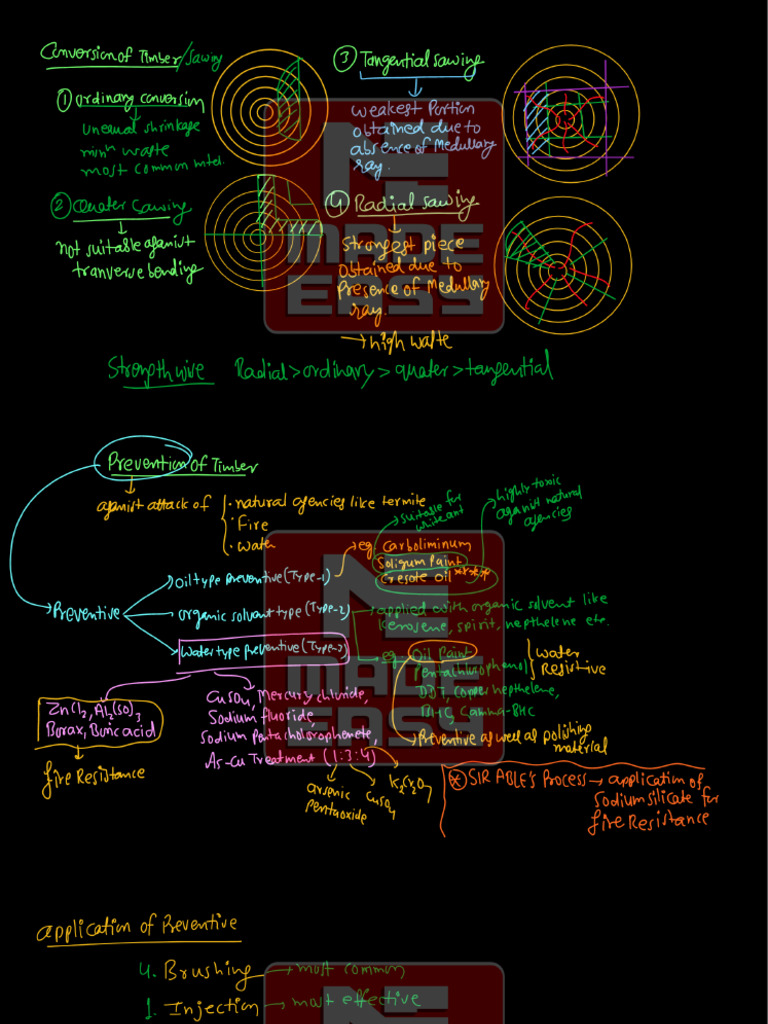 Conversion of Timber/Sawing
① Ordinary conversion
unequal shrinkage
minm waste
most common mtd.
② Quater Sawing
not suitable against
tranverse bending
③ Tangential sawing
weakest Portion
obtained due to
absence of Medullary
ray.
④ Radial sawing
Strongest piece
obtained due to
Presence of Medullary
ray.
→ high waste
Strengthwise Radial > ordinary > quater > tangential
Prevention of Timber
against attack of
• natural agencies like termite
• Fire
• water
suitable for
white ant
highly toxic
against natural
agencies
eg Carboliminum
Soligum Paint
Cresote oil ****
Preventive
Oil type preventive (Type-1)
organic solvent type (Type-2)
Water type preventive (Type-3)
applied with organic solvent like
kerosene, spirit, nepthelene etc.
eg. Oil Paint
Pentachlorophenol
DDT, Copper nepthelene,
BHC, Gamma-BHC
water
Resistive
Preventive as well as polishing
material
ZnCl2, Al2(SO)3
Borax, Boric acid
fire Resistance
CuSO4, Mercury chloride,
Sodium fluoride,
Sodium Pentachlorophenete,
As-Cu Treatment (1:3:4)
arsenic
pentaoxide
CuSO4
K2Cr2O7
* SIR ABLE'S PROCESS → application of
Sodium silicate for
fire Resistance
application of Preventive
4. Brushing → most common
1. Injection → most effective
MADE
EASY
MADE
EASY